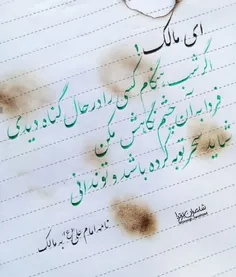 ای مالک!
اگر شب هنگام کسی را در حال گناه دیدی
فردا به آن چشم نگاهش مکن
شاید سحر توبه کرده باشد و تو ندانی
نامه امام علی (ع) به مالک